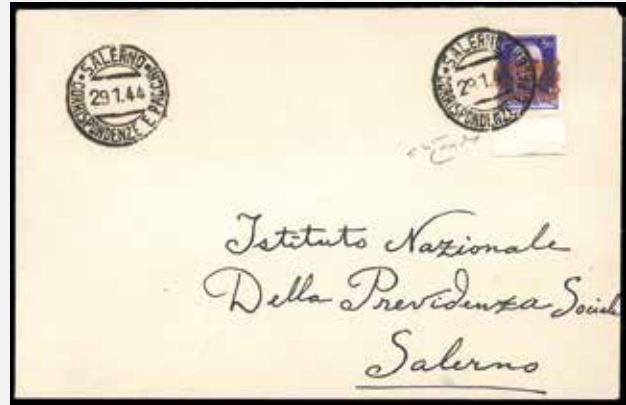 SALERNO
29.1.44
CORRISPONDENZE E PACCHI
SALERNO
29.1.
CORRISPONDENZE E PACCHI
Istituto Nazionale
Della Previdenza Sociale
Salerno